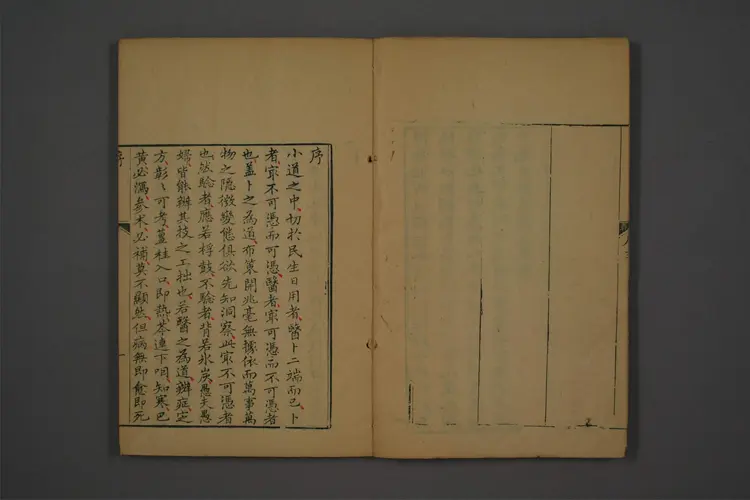 序
小道之中切於民生日用者醫卜二端而已卜
者最不可憑而可憑醫者最可憑而不可憑者
也蓋卜之為道布策開兆毫無據依而萬事萬
物之隱微變態俱欲先知洞察此最不可憑者
也然驗者應若桴鼓不驗者背若氷炭愚夫愚
婦皆能辨其技之工拙也若醫之為道辨症定
方彰〻可考薑桂入口即熱芩連下咽知寒巴
黄必瀉參朮必補莫不顯然但病無即愈即死